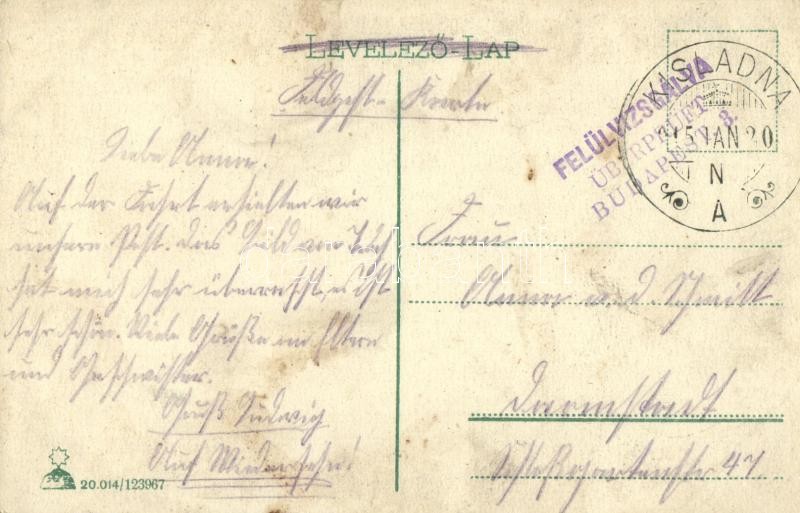 LEVELEZŐ-LAP
Feldpost-Karte
KISLADNA
915 JAN 20
N
A
FELÜLVIZSGÁLVA
ÜBERPRÜFT
BUDAPEST 3.
Liebe Anna!
Auf der Fahrt erhielten wir
unsere Post. Das Bild von Euch
hat mich sehr überrascht, es ist
sehr schön. Viele Grüße an Eltern
und Geschwister.
Gruß Ludwig
Auf Wiedersehn!
Frau
Anna v. d. Schmitt
Darmstadt
Schloßgartenstr 47
20.014/123967